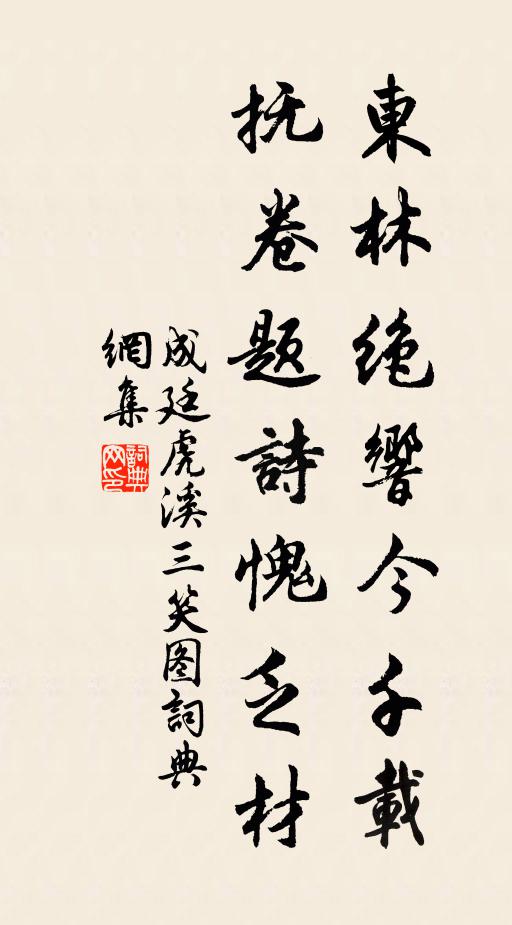 東林绝響今千載
抚卷题詩愧乏材
成廷虎溪三笑图詞典
網集
詞典
网印